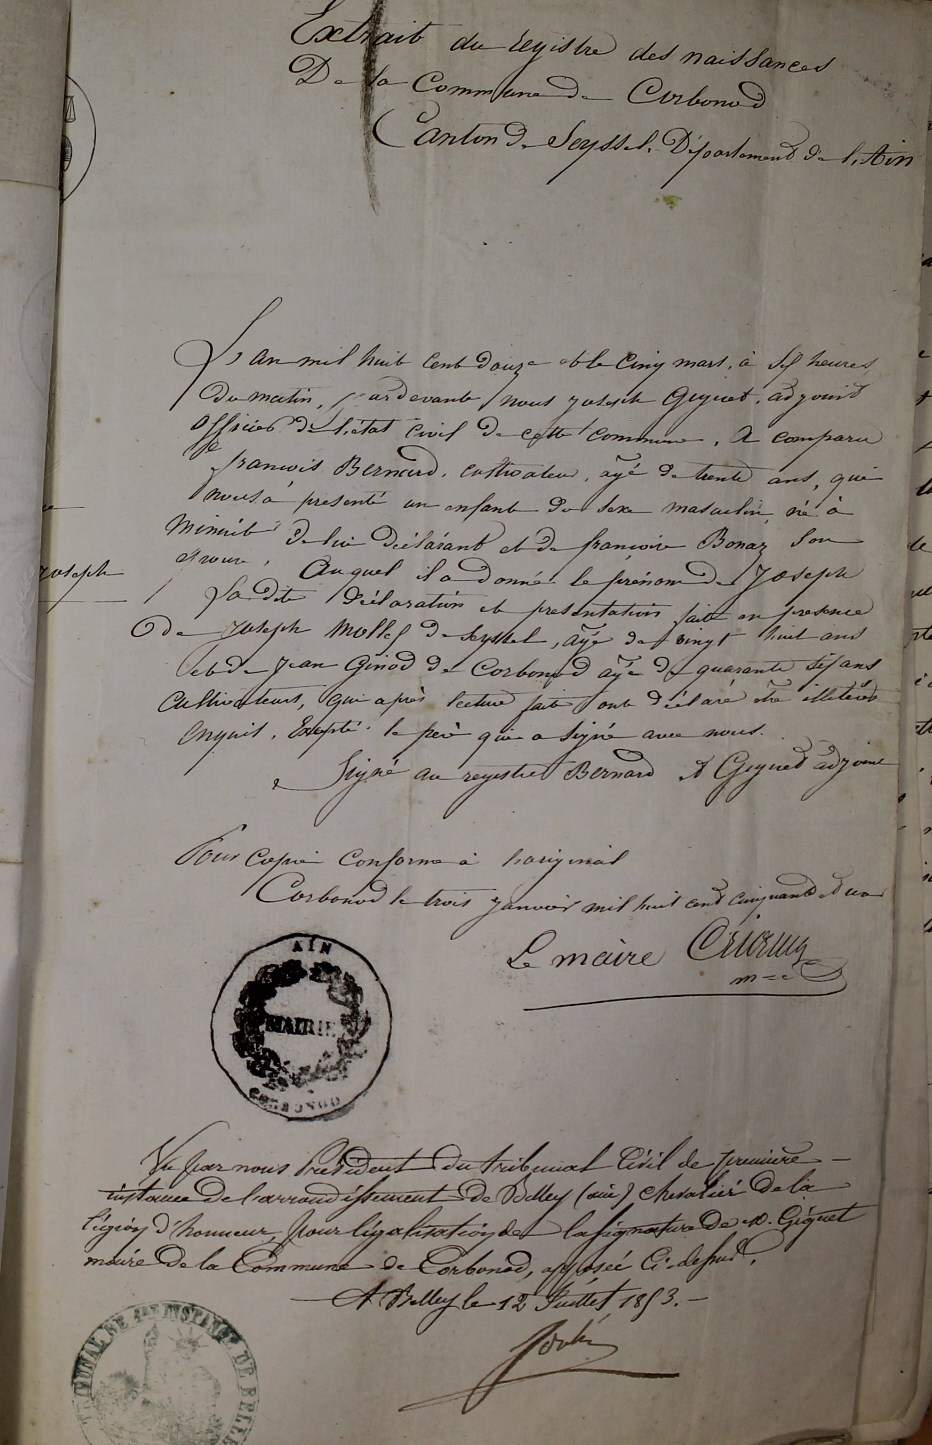 Extrait du registre des naissances
De la Commune de Corbonod
Canton de Seyssel. Département de l'Ain
L'an mil huit cent douze et le cinq mars, à heures
du matin, pardevant nous joseph Geguet, adjoint
officier de l'état civil de cette commune, A comparu
françois Bernard, cultivateur, agé de trente ans, qui
nous a présenté un enfant du sexe masculin, né à
minuit de lui déclarant et de francoise Bonaz son
épouse, Auquel il a donné le prénom de Joseph
La dite déclaration et présentation faite en présence
De Joseph de Seyssel, agé de vingt huit ans
et de Jean Ginod de Corbonod agé de quarante ans
Cultivateurs, qui après lecture faite ont déclaré être illitérés
enquis, Excepté le père qui a signé avec nous.
Signé au registre Bernard et Geguet adjoint
Joseph
Pour copie conforme à l'original
Corbonod le trois janvier mil huit cent cinquante
Le maire
AIN
MAIRIE
CORBONOD
Vu par nous Président du tribunal Civil de première
instance de l'arrondissement de Belley (ain) chevalier de la
légion d'honneur, pour légalisation de la signature de M. Géguet
maire de la Commune de Corbonod, apposée Ci-dessus,
A Belley le 12 Juillet 1853.
TRIBUNAL DE 1ere INSTANCE DE BELLE